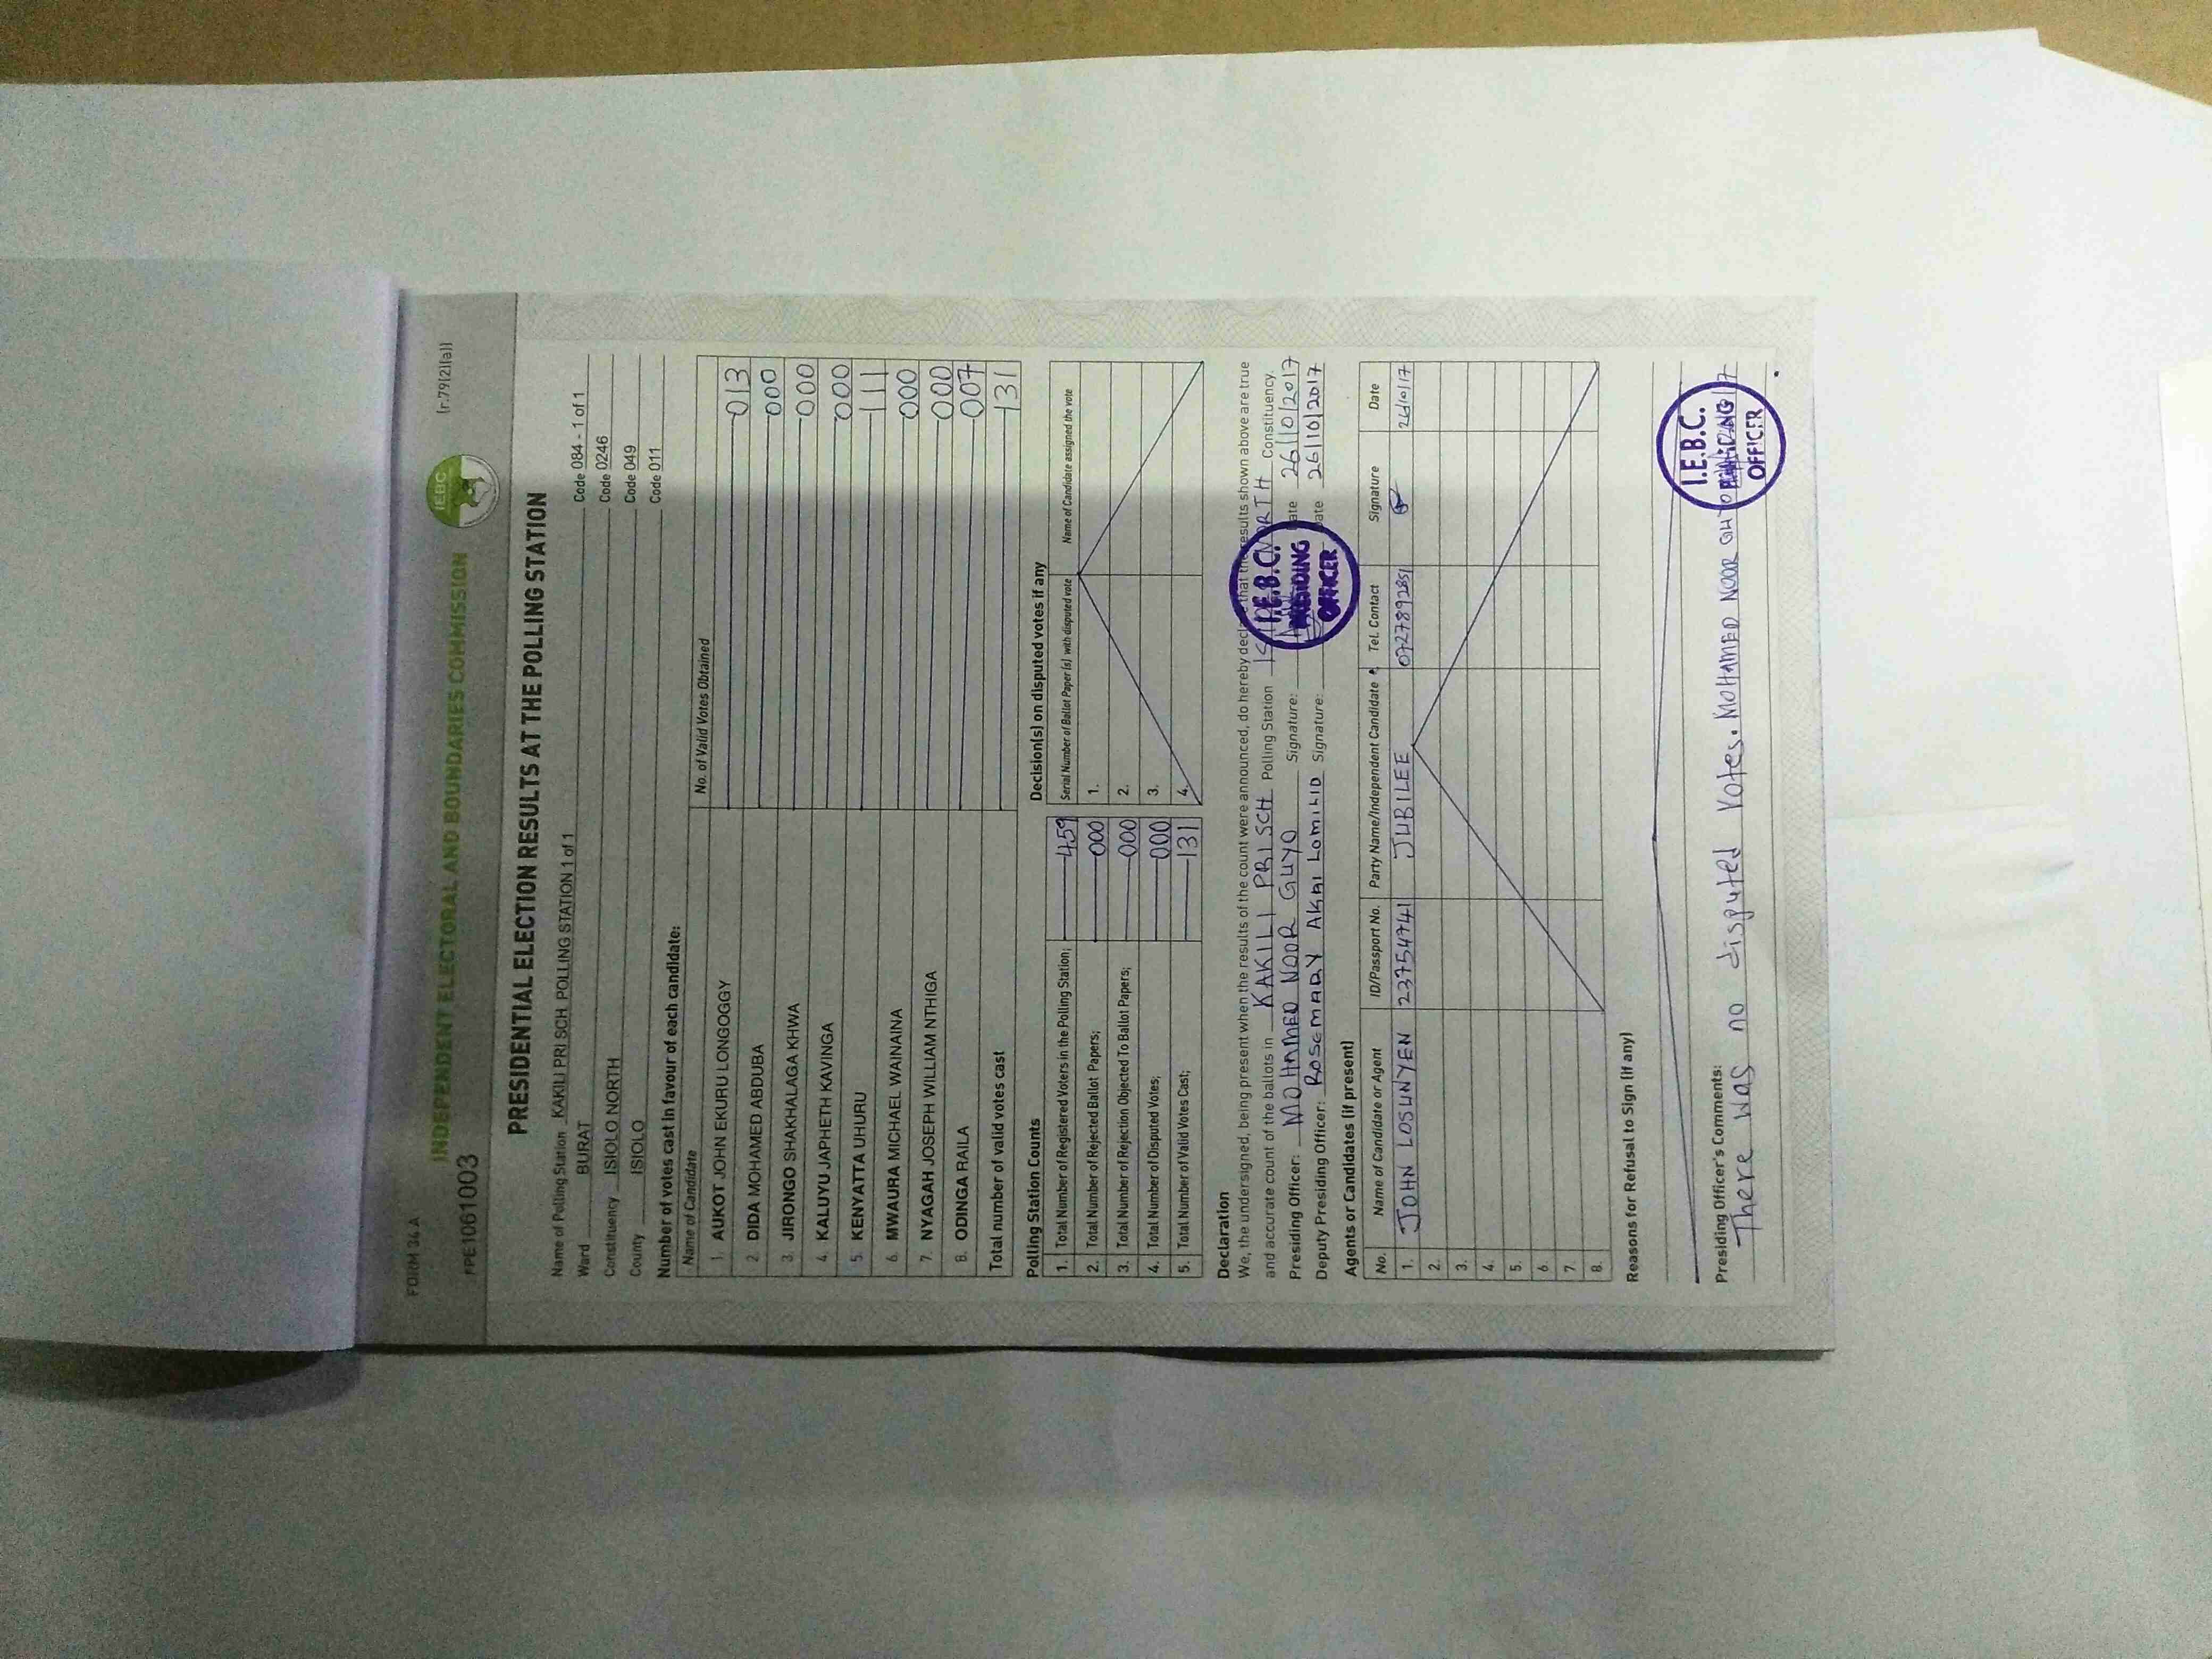 FORM 34 A
(r.79(2)(a))
INDEPENDENT ELECTORAL AND BOUNDARIES COMMISSION
IEBC
PPE1061003
PRESIDENTIAL ELECTION RESULTS AT THE POLLING STATION
Name of Polling Station KAKILI PRI SCH. POLLING STATION 1 of 1 Code 084 - 1 of 1
Ward BURAT Code 0246
Constituency ISIOLO NORTH Code 049
County ISIOLO Code 011
Number of votes cast in favour of each candidate:
Name of Candidate No. of Valid Votes Obtained
1. AUKOT JOHN EKURU LONGOGGY 013
2. DIDA MOHAMED ABDUBA 000
3. JIRONGO SHAKHALAGA KHWA 000
4. KALUYU JAPHETH KAVINGA 000
5. KENYATTA UHURU 111
6. MWAURA MICHAEL WAINAINA 000
7. NYAGAH JOSEPH WILLIAM NTHIGA 000
8. ODINGA RAILA 007
Total number of valid votes cast 131
Polling Station Counts
1. Total Number of Registered Voters in the Polling Station; 459
2. Total Number of Rejected Ballot Papers; 000
3. Total Number of Rejection Objected To Ballot Papers; 000
4. Total Number of Disputed Votes; 000
5. Total Number of Valid Votes Cast; 131
Decision(s) on disputed votes if any
Serial Number of Ballot Paper (s) with disputed vote Name of Candidate assigned the vote
1.
2.
3.
4.
Declaration
We, the undersigned, being present when the results of the count were announced, do hereby declare that the results shown above are true
and accurate count of the ballots in KAKILI PRI SCH Polling Station ISIOLO NORTH Constituency.
Presiding Officer: MOHAMED NOOR GUYO Signature: Date 26/10/2017
Deputy Presiding Officer: ROSEMARY AKAI LOMILIO Signature: Date 26/10/2017
I.E.B.C.
PRESIDING
OFFICER
Agents or Candidates (if present)
No. Name of Candidate or Agent ID/Passport No. Party Name/Independent Candidate Tel. Contact Signature Date
1. JOHN LOSUNYEN 23754741 JUBILEE 0727892851 26/10/17
2.
3.
4.
5.
6.
7.
8.
Reasons for Refusal to Sign (if any)
Presiding Officer's Comments:
There was no disputed votes. MOHAMED NOOR GUYO
I.E.B.C.
PRESIDING
OFFICER